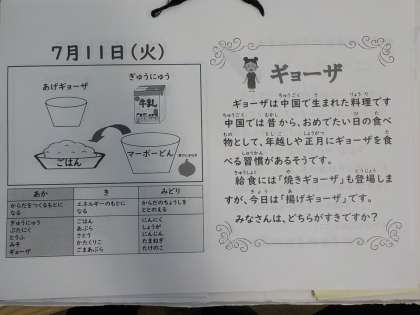 7月11日(火)
あげギョーザ
ぎゅうにゅう
牛乳
ごはん
マーボーどん
あか
き
みどり
からだをつくるもとに
なる
エネルギーのもとに
なる
からだのちょうしを
ととのえる
ぎゅうにゅう
ぶたにく
とうふ
みそ
ギョーザ
ごはん
あぶら
さとう
かたくりこ
ごまあぶら
にんにく
しょうが
にんじん
たまねぎ
たけのこ
ギョーザ
ギョーザは中国で生まれた料理です
中国では昔から、おめでたい日の食べ
物として、年越しや正月にギョーザを食
べる習慣があるそうです。
給食には「焼きギョーザ」も登場しま
すが、今日は「揚げギョーザ」です。
みなさんは、どちらがすきですか？